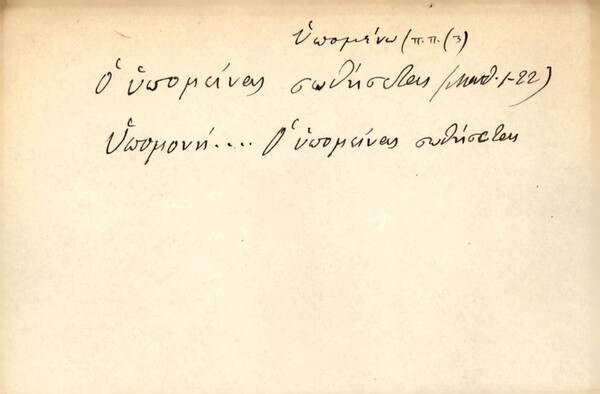 ὑπομένω (π.π. (3)
Ὁ ὑπομείνας σωθήσεται (Ματθ. ι-22)
Ὑπομονή.... Ὁ ὑπομείνας σωθήσεται